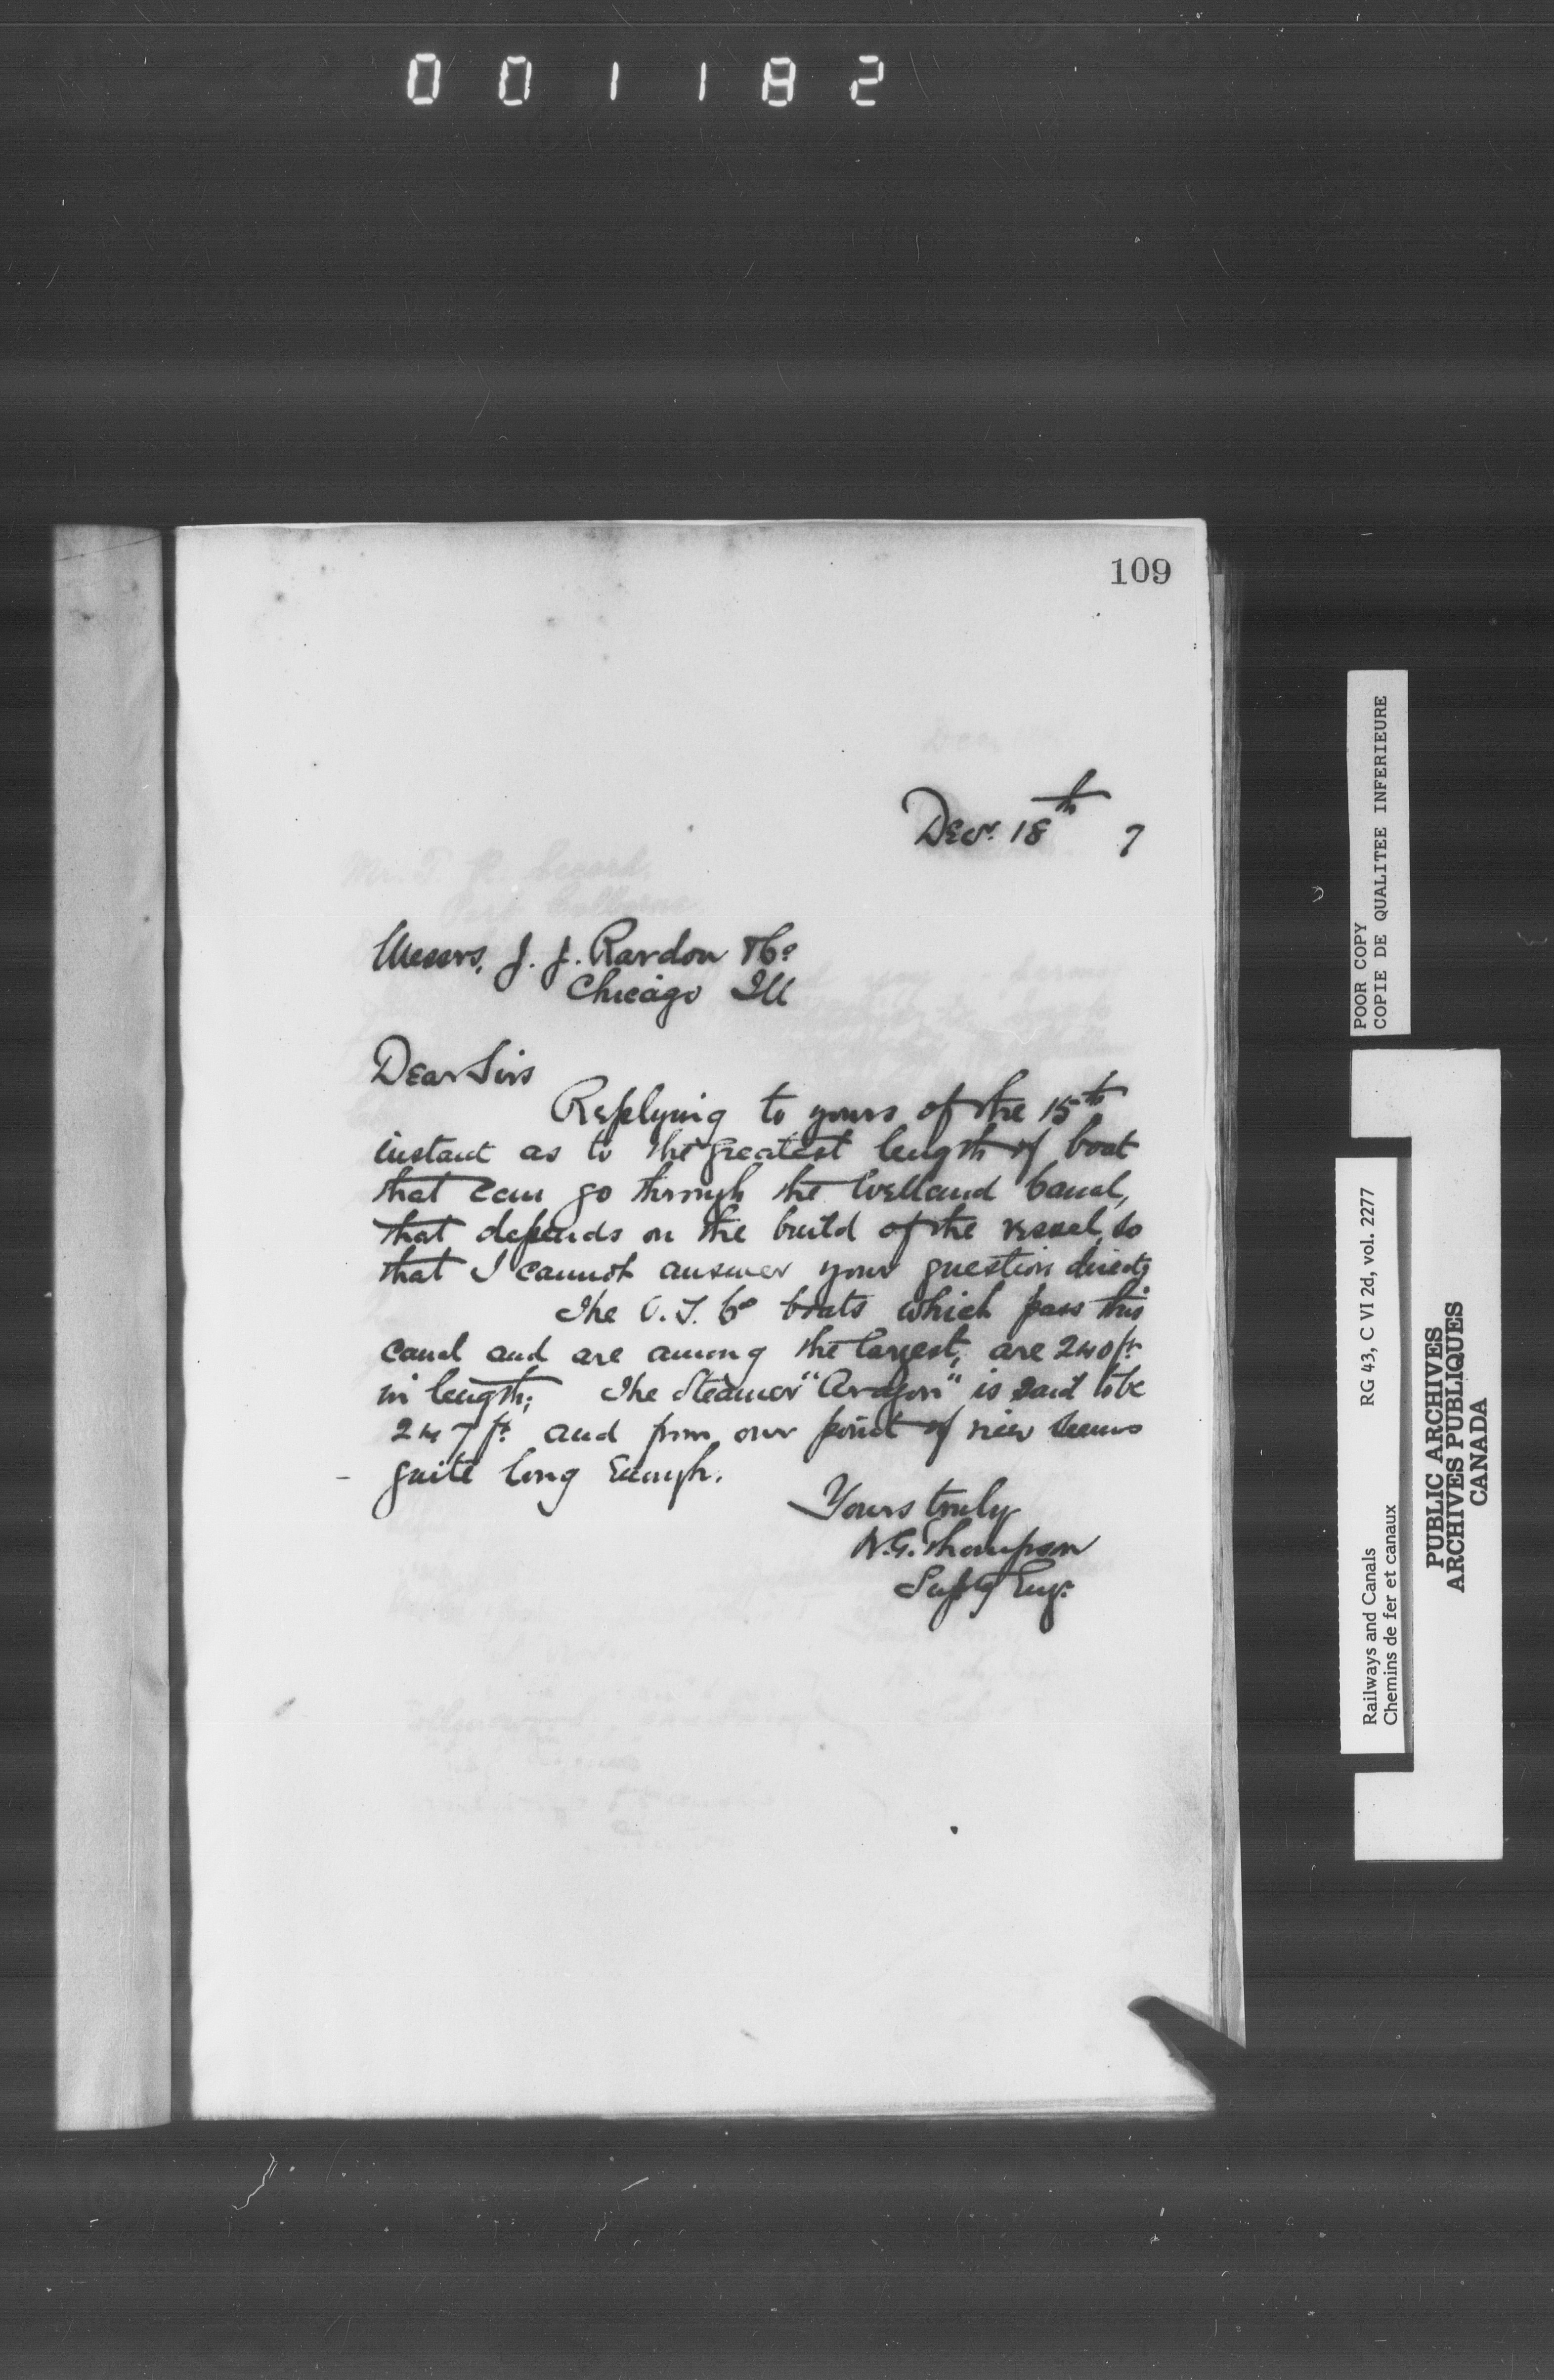 001182
109
Decr. 18th 7
Messrs. J. J. Rardon & Co
Chicago Ill
Dear Sirs
Replying to yours of the 15th
instant as to the greatest length of boat
that can go through the Welland Canal,
that depends on the build of the vessel, so
that I cannot answer your question directly
The O. T. Co boats which pass this
canal and are among the largest, are 240 ft.
in length; The Steamer "Aragon" is said to be
247 ft. and from our point of view seems
quite long enough.
Yours truly
W.G. Thompson
Supt Engr.
POOR COPY
COPIE DE QUALITEE INFERIEURE
Railways and Canals RG 43, C VI 2d, vol. 2277
Chemins de fer et canaux
PUBLIC ARCHIVES
ARCHIVES PUBLIQUES
CANADA